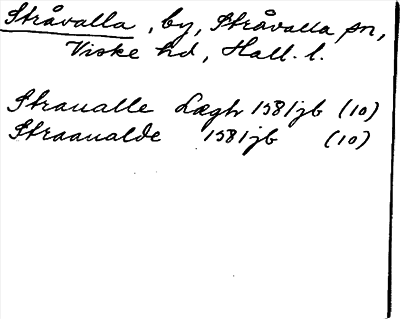 Stråvalla, by, Stråvalla sn,
Viske hd, Hall. l.
Straualle Lægh 1581jb (10)
Straaualde 1581jb (10)